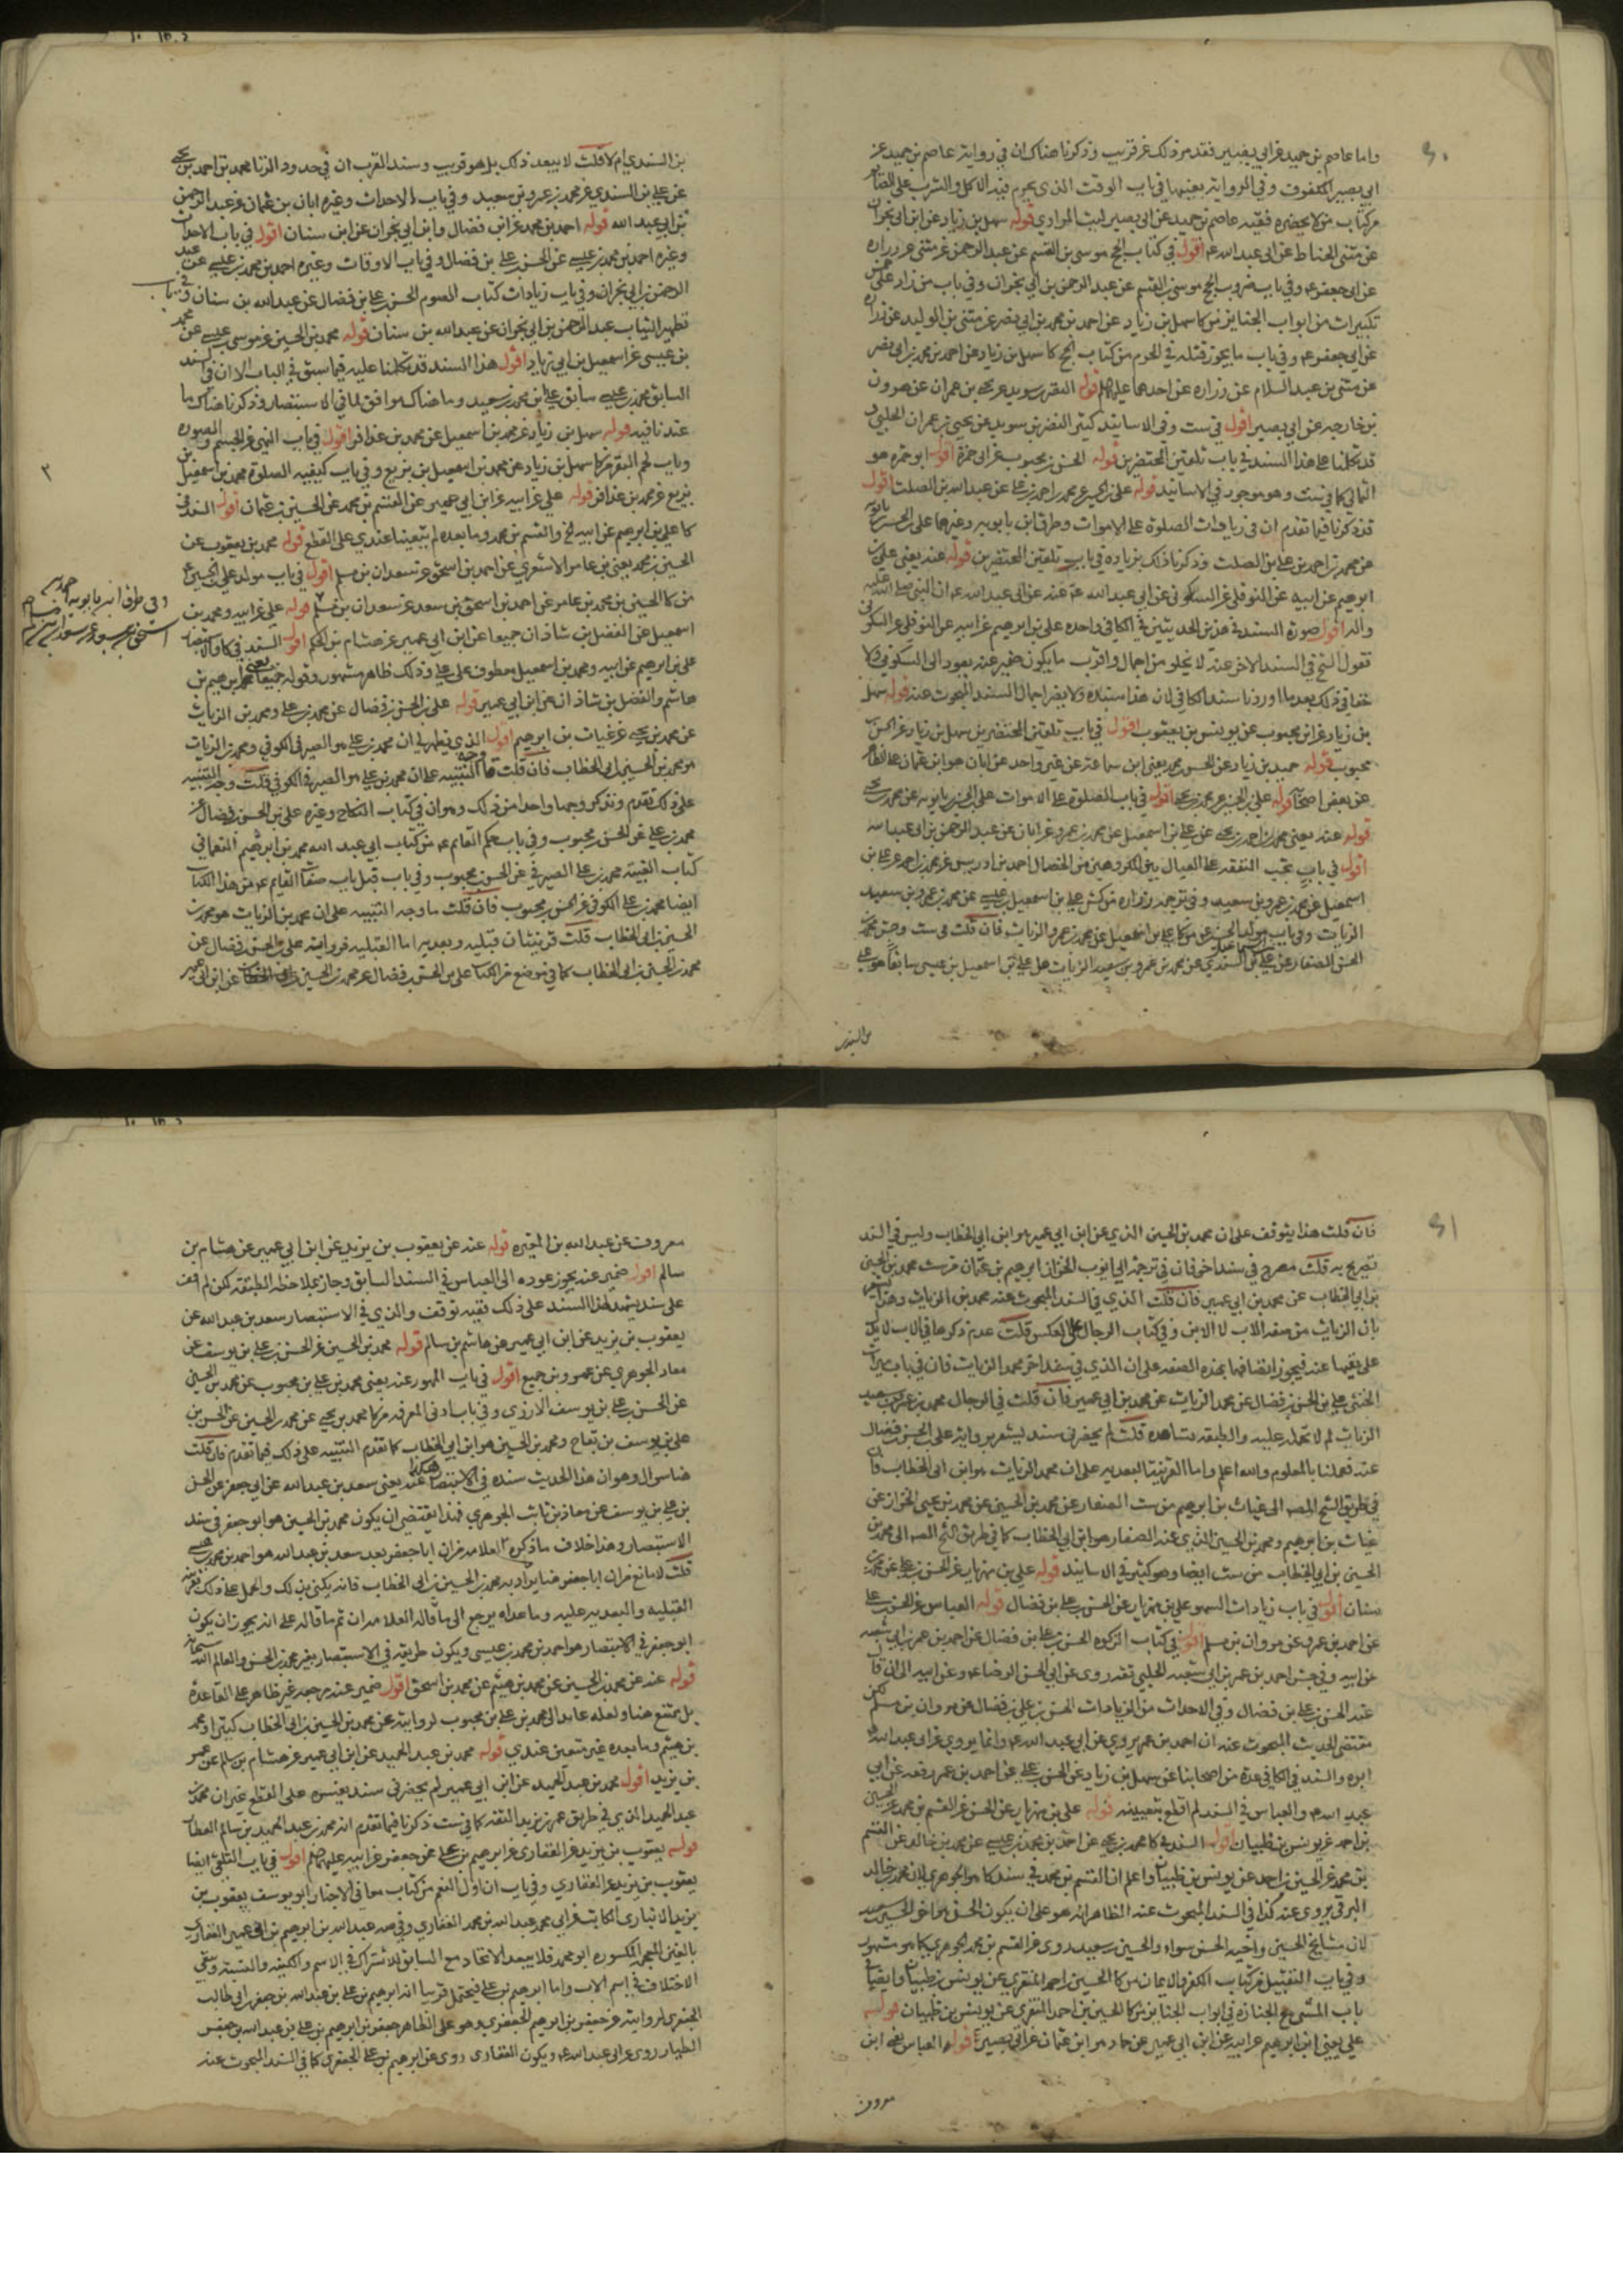 واما عاصم بن حميد عن ابي بصير فقد مر ذلك عن قريب وذكرنا هناك ان في رواية عاصم بن حميد عن
ابي بصير المكفوف وفي الرواية بعينها في باب الوقت الذي يحرم فيه الاكل والشرب على الصائم
من كتاب من لا يحضره فقيه عاصم بن حميد عن ابي بصير ليث المرادي قوله سهل بن زياد عن ابن ابي نجران
عن مثنى الحناط عن ابي عبد الله ع اقول في كتاب الحج موسى بن القسم عن عبد الرحمن عن مثنى عن زراره
عن ابي جعفر ع وفي باب ضروب الحج موسى بن القسم عن عبد الرحمن بن ابي نجران وفي باب من زاد على خمس
تكبيرات من ابواب الجنايز من كا سهل بن زياد عن احمد بن محمد بن ابي نصر عن مثنى بن الوليد عن زراره
عن ابي جعفر ع وفي باب ما يجوز قتله في الحرم من كتاب الحج كا سهل بن زياد عن احمد بن محمد بن ابي نصر
عن مثنى بن عبد السلام عن زراره عن احدهما عليهما قوله النضر بن سويد عن يحيى بن عمران عن هرون
بن خارجه عن ابي بصير اقول في ست وفي الاسانيد كثير النضر بن سويد عن يحيى بن عمران الحلبي و
قد تكلمنا على هذا السند في باب تلقين المحتضرين قوله الحسن بن محبوب عن ابي حمزة اقول ابو حمزه هو
الثمالي كما في ست وهو موجود في الاسانيد قوله على بن الحسين عن محمد بن احمد بن علي عن عبد الله بن الصلت اقول
قد ذكرنا فيما تقدم ان في زيادات الصلوة على الاموات وطرق ابن بابويه وغيرهما على بن الحسين بن بابويه
عن محمد بن احمد بن علي بن الصلت وذكرنا ذلك بزياده في باب تلقين المحتضرين قوله عنه يعني علي بن
ابرهيم عن ابيه عن النوفلي عن السكوني عن ابي عبد الله ع عنه عن ابي عبد الله ع ان النبي صلى الله عليه
واله اقول صورة السند في هذين الحديثين في الكافي واحده علي بن ابرهيم عن ابيه عن النوفلي عن السكوني
فقول الشيخ في السند الاخر عنه لا يخلو من اجمال واقرب ما يكون ضمير عنه يعود الى السكوني ولا
خفا في ذلك بعد ما اوردنا سند الكافي لان هذا سنده ولا يضر اجمال السند المبحوث عنه قوله سهل
بن زياد عن ابن محبوب عن يونس بن يعقوب اقول في باب تلقين المحتضرين سهل بن زياد عن الحسن بن
محبوب قوله حميد بن زياد عن الحسن بن محمد يعني ابن سماعة عن غير واحد عن ابان هو ابن عثمان على الظاهر
قوله عنه يعني محمد بن احمد بن يحيى عن علي بن اسمعيل عن محمد بن عمرو عن ابان عن عبد الرحمن بن ابي عبد الله
اقول في باب تجب النفقه على العيال
اسمعيل عن محمد بن عمرو بن سعيد وفي ترجمة زراره من كش علي بن اسمعيل بن عيسى عن محمد بن عمرو بن سعيد
الزيات وفي باب مولد الحسين ع من كا علي بن اسمعيل عن محمد بن عمرو الزيات فان قلت في ست وجش محمد بن
الحسن الصفار عن علي بن السندي عن محمد بن عمرو بن سعيد الزيات هل علي بن اسمعيل بن عيسى سابقا هو علي
بن السندي
بن السندي ام لا قلت لا يبعد ذلك بل هو قريب وسند القرب ان في حدود الزنا محمد بن احمد بن يحيى
عن علي بن السندي عن محمد بن عمرو بن سعيد وفي باب الاحداث وغيره ابان بن عثمان عن عبد الرحمن
بن ابي عبد الله قوله احمد بن محمد عن ابن فضال وابن ابي نجران عن ابن سنان اقول في باب الاحداث
وغيره احمد بن محمد بن عيسى عن الحسن بن علي بن فضال وفي باب الاوقات وغيره احمد بن محمد بن عيسى عن عبد
الرحمن بن ابي نجران وفي باب زيادات كتاب الصوم الحسن بن علي بن فضال عن عبد الله بن سنان وفي باب
تطهير الثياب عبد الرحمن بن ابي نجران عن عبد الله بن سنان قوله محمد بن الحسين عن موسى بن عيسى عن محمد
بن عيسى عن اسمعيل بن ابي زياد اقول هذا السند قد تكلمنا عليه فيما سبق في الباب الا ان في السند
السابق محمد بن عيسى سابق علي بن محمد بن سعيد وما هناك موافق لما في الاستبصار وذكرنا هناك ما
عندنا فيه قوله سهل بن زياد عن محمد بن اسمعيل عن محمد بن عذافر اقول في باب النهي عن الجسم والصوره
وباب لحم البقر من كا سهل بن زياد عن محمد بن اسمعيل بن بزيع وفي باب كيفيه الصلوة محمد بن اسمعيل بن
بزيع عن محمد بن عذافر قوله علي عن ابيه عن ابن ابي عمير عن القسم بن محمد عن الحسين بن عثمان اقول السند في
كا علي بن ابرهيم عن ابيه الخ والقسم بن محمد وما بعده لم يتعينا عندي على القطع قوله محمد بن يعقوب عن
الحسين بن محمد يعني بن عامر الاشعري عن احمد بن اسحق عن سعدان بن مسلم اقول في باب مولد علي بن الحسين ع
من كا الحسين بن محمد بن عامر عن احمد بن اسحق بن سعد عن سعدان بن مسلم قوله علي عن ابيه ومحمد بن
اسمعيل عن الفضل بن شاذان جميعا عن ابن ابي عمير عن هشام بن الحكم اقول السند في كا والاستبصار
علي بن ابرهيم عن ابيه ومحمد بن اسمعيل معطوف على علي وذلك ظاهر مشهور وقوله جميعا يعني ابرهيم بن
هاشم والفضل بن شاذان عن ابن ابي عمير قوله علي بن الحسن بن فضال عن محمد بن علي ومحمد بن الزيات
عن محمد بن يحيى عن غياث بن ابرهيم اقول الذي يظهر لي ان محمد بن علي هو الصيرفي الكوفي ومحمد بن الزيات
هو محمد بن الحسين بن ابي الخطاب فان قلت ما وجه التنبيه على ان محمد بن علي هو الصيرفي الكوفي قلت وجه التنبيه
على ذلك تقدم ونذكر وجها واحدا من ذلك وهو ان في كتاب النكاح وغيره علي بن الحسن بن فضال عن
محمد بن علي عن الحسن بن محبوب وفي باب حكم القايم ع من كتاب ابي عبد الله محمد بن ابرهيم النعماني
كتاب الغيبة محمد بن علي الصيرفي عن الحسن بن محبوب وفي باب قبل باب صفة القايم ع من هذا الكتاب
ايضا محمد بن علي الكوفي عن الحسن بن محبوب فان قلت ما وجه التنبيه على ان محمد بن الزيات هو محمد بن
الحسين بن ابي الخطاب قلت قرينتان قبليه وبعديه اما القبليه فرواية علي بن الحسن بن فضال عن
محمد بن الحسين بن ابي الخطاب كما في موضع من الكتاب علي بن الحسن بن فضال عن محمد بن الحسين بن ابي الخطاب عن ابن ابي عمير
وفي طرق ابن بابويه احمد بن
اسحق بن سعد عن سعدان بن مسلم
فان قلت هذا يتوقف على ان محمد بن الحسين الذي عن ابن ابي عمير هو ابن ابي الخطاب وليس في السند
تصريح به قلت مصرح في سند اخر فان في ترجمة ابي ايوب الخزاز ابرهيم بن عثمان من ست محمد بن الحسين
بن ابي الخطاب عن محمد بن ابي عمير فان قلت الذي في السند المبحوث عنه محمد بن الزيات
بان الزيات من صفة الاب لا الابن وفي كتاب الرجال على العكس قلت عدم ذكرها في الاب لا يدل
على نفيها عنه فيجوز اتصافهما بهذه الصفه على ان الذي في سند اخر محمد الزيات فان في باب ميراث
الخنثى علي بن الحسن بن فضال عن محمد الزيات عن محمد بن ابي عمير فان قلت في الرجال محمد بن عمرو بن سعيد
الزيات لم لا تحمله عليه والطبقه تساعده قلت لم يحضرني سند يشعر برواية علي بن الحسن بن فضال
عنه فعملنا بالمعلوم والله اعلم واما القرينة البعديه على ان محمد الزيات هو ابن ابي الخطاب فان
في طريق الشيخ المصه الى غياث بن ابرهيم من ست الصفار عن محمد بن الحسين عن محمد بن يحيى الخزاز عن
غياث بن ابرهيم ومحمد بن الحسين الذي عنه الصفار هو ابن ابي الخطاب كما في طريق الشيخ المصه الى محمد بن
الحسين بن ابي الخطاب من ست ايضا وهو كثير في الاسانيد قوله علي بن مهزيار عن الحسن بن علي عن محمد بن
سنان اقول في باب زيادات السهو علي بن مهزيار عن الحسن بن علي بن فضال قوله العباس عن الحسن بن علي
عن احمد بن عمر عن مروان بن مسلم اقول في كتاب الزكوه الحسن بن علي بن فضال عن احمد بن عمر بن ابي شعبه
عن ابيه وفي جش احمد بن عمر بن ابي شعبه الحلبي ثقه روى عن ابي الحسن الرضا ع وعن ابيه الى ان قال
عنه الحسن بن علي بن فضال وفي الاحداث من الزيادات الحسن بن علي بن فضال عن مروان بن مسلم لكن
مقتضى الحديث المبحوث عنه ان احمد بن عمر يروي عن ابي عبد الله ع وانما يروي عن ابي عبد الله ع
ابوه والسند في الكافي عدة من اصحابنا عن سهل بن زياد عن الحسن بن علي عن احمد بن عمر رفعه عن ابي
عبد الله ع والعباس في السند لم اقطع بتعيينه قوله علي بن مهزيار عن الحسن عن القسم بن محمد عن الحسين
بن احمد عن يونس بن ظبيان اقول السند في كا محمد بن يحيى عن احمد بن محمد بن عيسى عن محمد بن خالد عن القسم
بن محمد عن الحسين بن احمد عن يونس بن ظبيان واعلم ان القسم بن محمد في سند كا هو الجوهري لان محمد بن خالد
البرقي يروي عنه كذا في السند المبحوث عنه الظاهر انه هو على ان يكون الحسن هو اخو الحسين بن سعيد
لان مشايخ الحسين واخيه الحسن سواء والحسين بن سعيد روى عن القسم بن محمد الجوهري كما هو مشهور
وفي باب التقبيل من كتاب الكفر والايمان من كا الحسين بن احمد المنقري عن يونس بن ظبيان وايضا في
باب المشي مع الجنازه في ابواب الجنايز من كا الحسين بن احمد المنقري عن يونس بن ظبيان قوله
علي يعني ابن ابرهيم عن ابيه عن ابن ابي عمير عن حماد هو ابن عثمان عن ابي بصير قوله العباس يعني ابن
معروف
معروف عن عبد الله بن المغيره قوله عنه عن يعقوب بن يزيد عن ابن ابي عمير عن هشام بن
سالم اقول ضمير عنه يجوز عوده الى العباس في السند السابق وجاز بملاحظه الطبقه لكن لم اقف
على سند يشهد لهذا السند على ذلك ففيه توقف والذي في الاستبصار سعد بن عبد الله عن
يعقوب بن يزيد عن ابن ابي عمير عن هاشم بن سالم قوله محمد بن الحسين عن الحسن بن علي بن يوسف عن
معاذ الجوهري عن عمرو بن جميع اقول في باب المهور عنه يعني محمد بن علي بن محبوب عن محمد بن الحسين
عن الحسن بن علي بن يوسف الازدي وفي باب ادنى المعرفه من كا محمد بن يحيى عن محمد بن الحسين عن الحسن بن
علي بن يوسف بن بقاح ومحمد بن الحسين هو ابن ابي الخطاب كما تقدم التنبيه على ذلك فيما تقدم فان قلت
هنا سوال وهو ان هذا الحديث سنده في الاستبصار هكذا عنه يعني سعد بن عبد الله عن ابي جعفر عن الحسن
بن علي بن يوسف عن معاذ بن ثابت الجوهري فهذا يقتضي ان يكون محمد بن الحسين هو ابو جعفر في سند
الاستبصار وهذا خلاف ما ذكره العلامه من ان ابا جعفر بعد سعد بن عبد الله هو احمد بن محمد بن عيسى
قلت لا مانع من ان ابا جعفر هنا يراد به محمد بن الحسين بن ابي الخطاب فانه يكنى بذلك والحمل على ذلك لقرينة
القبليه والبعديه عليه وما عداه يرجع الى ما قاله العلامه ان تم ما قاله على انه يجوز ان يكون
ابو جعفر في الاستبصار هو احمد بن محمد بن عيسى ويكون طريقه في الاستبصار بغير محمد بن الحسين والعالم الله سبحانه
قوله عنه عن محمد بن الحسين عن محمد بن هيثم عن محمد بن اسحق اقول ضمير عنه مرجعه غير ظاهر على القاعدة
بل يمتنع هنا ولعله عايد الى محمد بن علي بن محبوب لروايته عن محمد بن الحسين بن ابي الخطاب كثيرا ومحمد
بن هيثم وما بعده غير متعين عندي قوله محمد بن عبد الحميد عن ابن ابي عمير عن هشام بن سالم عن عمر
بن يزيد اقول محمد بن عبد الحميد عن ابن ابي عمير لم يحضرني سند بعينه على القطع غير ان محمد بن
عبد الحميد الذي في طريق عمر بن يزيد الثقه كما في ست ذكرنا فيما تقدم انه محمد بن عبد الحميد بن سالم العطار
قوله يعقوب بن يزيد عن الغفاري عن ابرهيم بن علي عن جعفر عن ابيه عليهما اقول في باب التلقي ايضا
يعقوب بن يزيد عن الغفاري وفي باب ان اول النعم من كتاب معاني الاخبار ابو يوسف يعقوب بن
يزيد الانباري الكاتب عن ابي محمد عبد الله بن محمد الغفاري وفي صه عبد الله بن ابرهيم بن ابي عمير الغفاري
بالغين المعجمه المكسوره ابو محمد فلا يبعد الاتحاد مع السابق للاشتراك في الاسم والكنيه والنسبة وبقي
الاختلاف في اسم الاب واما ابرهيم بن علي فيحتمل قريبا انه ابرهيم بن علي بن عبد الله بن جعفر بن ابي طالب
الجعفري لروايته عن جعفر بن ابرهيم الجعفري وهو على الظاهر جعفر بن ابرهيم بن علي بن عبد الله بن جعفر
الطيار روى عن ابي عبد الله ع ويكون الغفاري روى عن ابرهيم بن علي الجعفري كما في السند المبحوث عنه